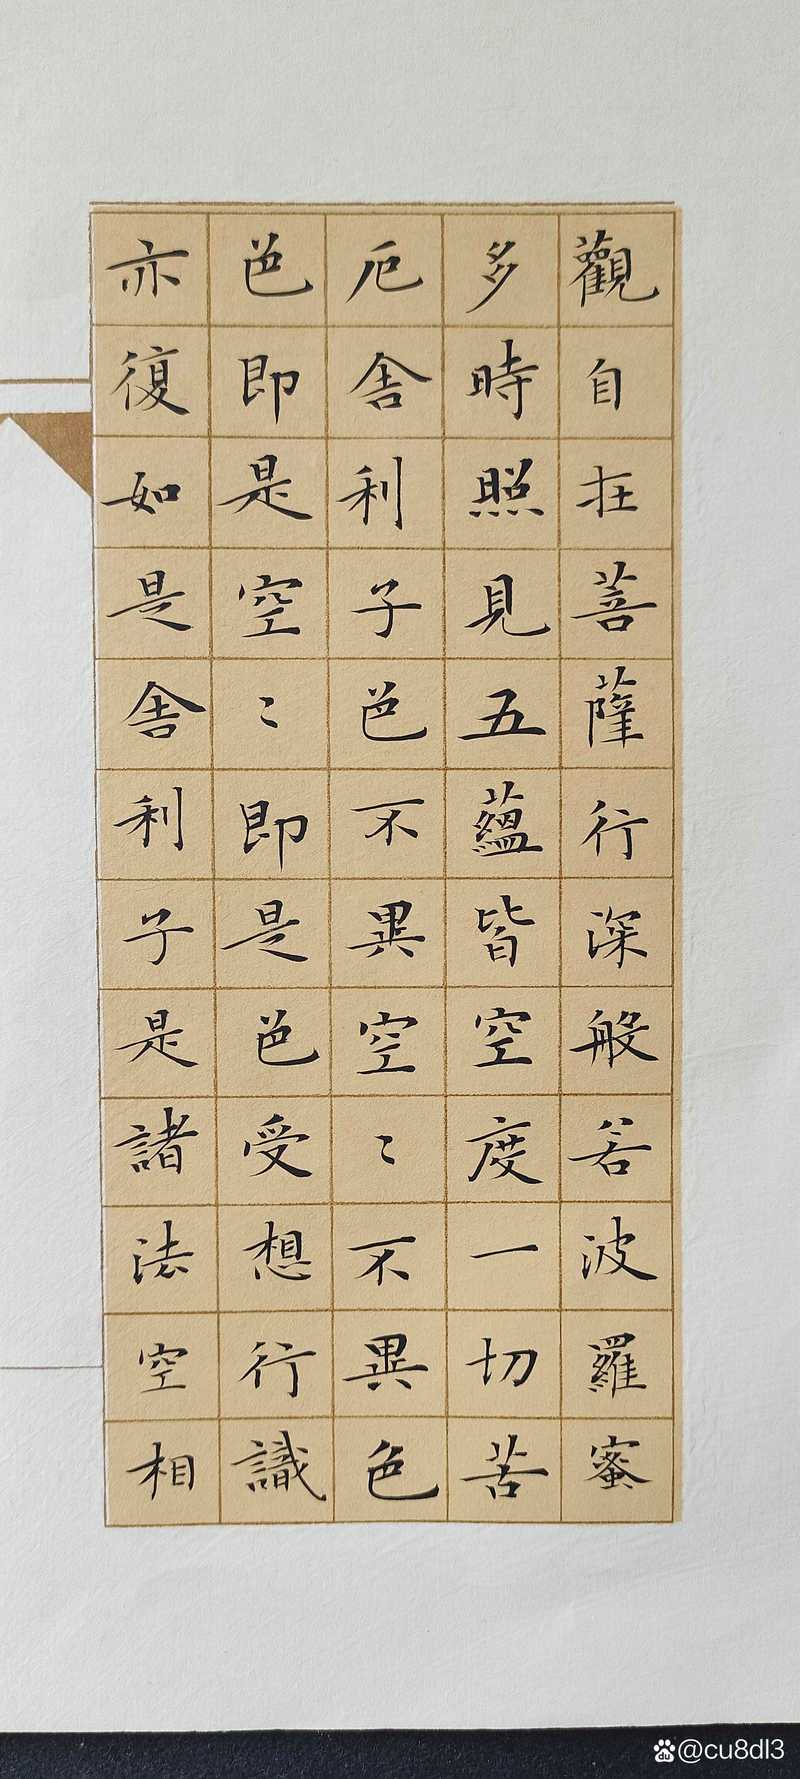 觀自在菩薩行深般若波羅蜜
多時照見五蘊皆空度一切苦
厄舍利子色不異空〻不異色
色即是空〻即是色受想行識
亦復如是舍利子是諸法空相
@cu8dl3